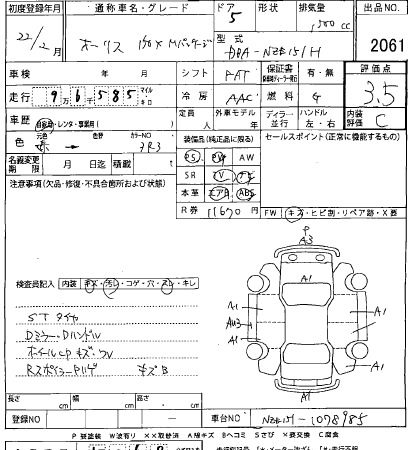 初度登録年月 通称車名・グレード ドア 形状 排気量 出品NO.
22/2月 オーリス 150X Mパッケージ 5 1500cc
型式 DBA-NZE151H 2061
車検 年 月 シフト FAT 保証書 有・無 評価点
走行 9万6千585 マイル キロ 冷房 AAC 燃料 G 3.5
車歴 自家用・レンタ・事業用( ) 定員 人 外車モデル 年 ディーラー 並行 ハンドル 左・右 内装評価 C
色 元色 色替 カラーNO 3R3 装備品(純正品に限る) セールスポイント(正常に機能するもの)
赤 → PS PW AW
名義変更期限 月 日迄 積載 SR TV ナビ
注意事項(欠品・修復・不具合箇所および状態) 本革 エアB ABS
R券 11670 円 FW キズ・ヒビ割・リペア跡・X要
P
A3
A1
検査員記入 内装 キズ・汚レ・コゲ・穴・スレ・キレ
STタイヤ
Dミラー・Dハンドル
ホイールCPキズ・
RスポイラーPハゲ キズB
A1 A1
AU3 A1
A1 A1
A1
長さ cm 幅 cm 高さ cm
登録NO － 車台NO NZE151-1078985
P 要塗装 W 波有リ XX取替済 A 線キズ Bヘコミ Sさび X要交換 C腐食